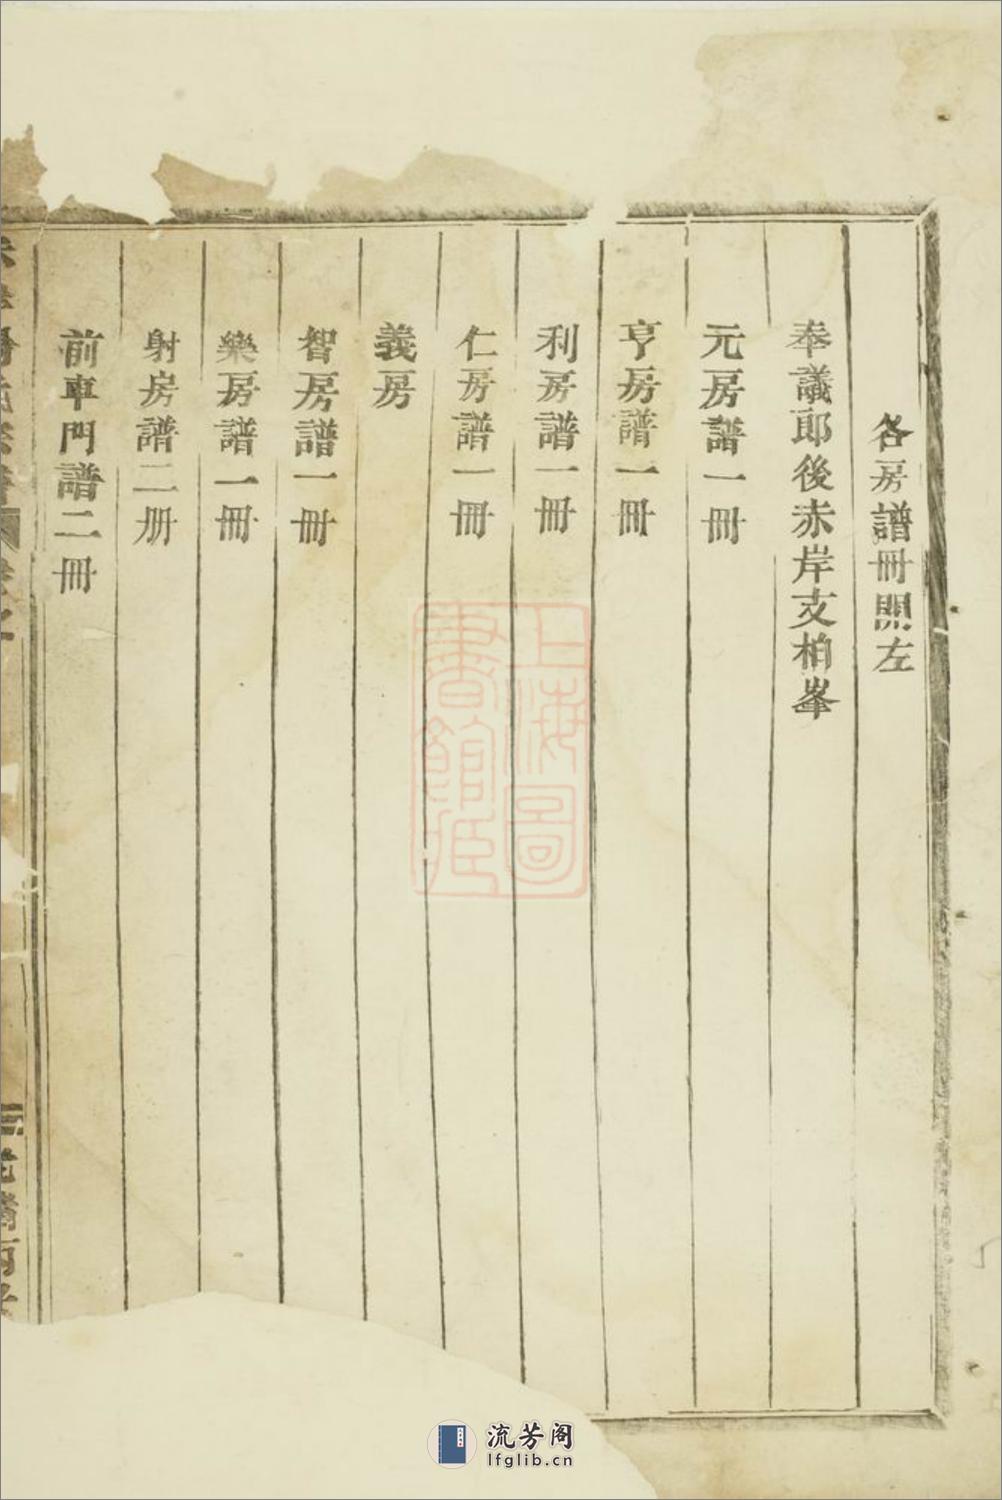 各房譜冊開左
奉議郎後赤岸支柏峯
元房譜一冊
亨房譜一冊
利房譜一冊
仁房譜一冊
義房
智房譜一冊
樂房譜一冊
射房譜二册
前車門譜二冊
上海圖
書館
流芳阁
lfglib.cn